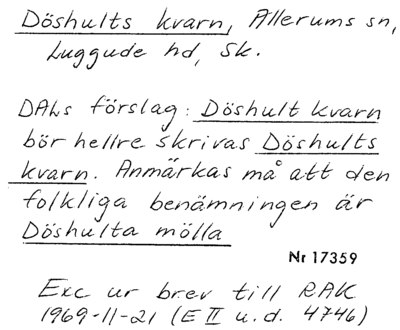 Döshults kvarn, Allerums sn,
Luggude hd, Sk.
DALs förslag: Döshult kvarn
bör hellre skrivas Döshults
kvarn. Anmärkas må att den
folkliga benämningen är
Döshulta mölla
Nr 17359
Exc ur brev till RAK
1969-11-21 (E II u. d. 4746)